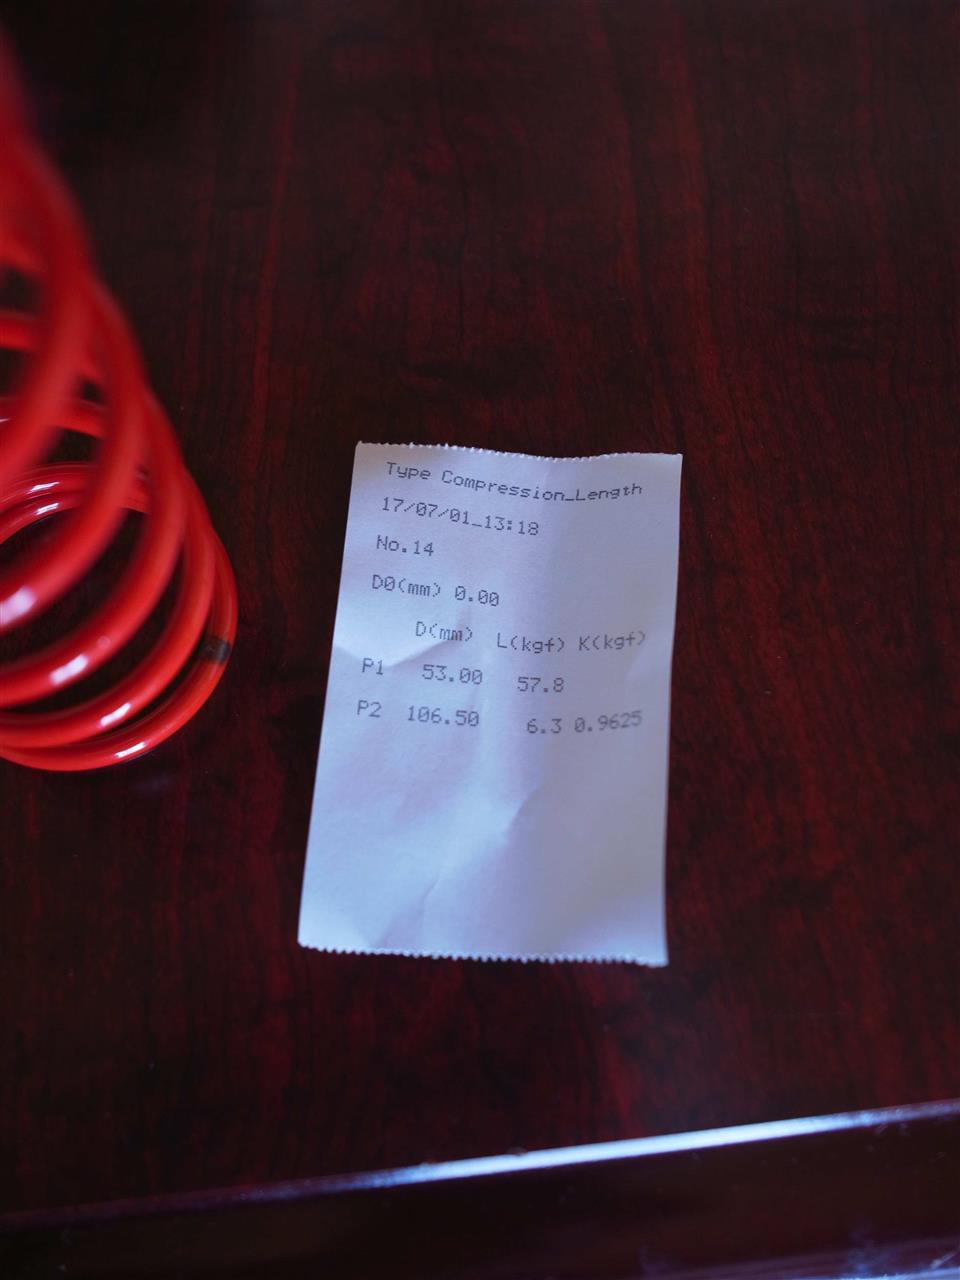 Type Compression_Length
17/07/01_13:18
No.14
D0(mm) 0.00
D(mm) L(kgf) K(kgf)
P1 53.00 57.8
P2 106.50 6.3 0.9625